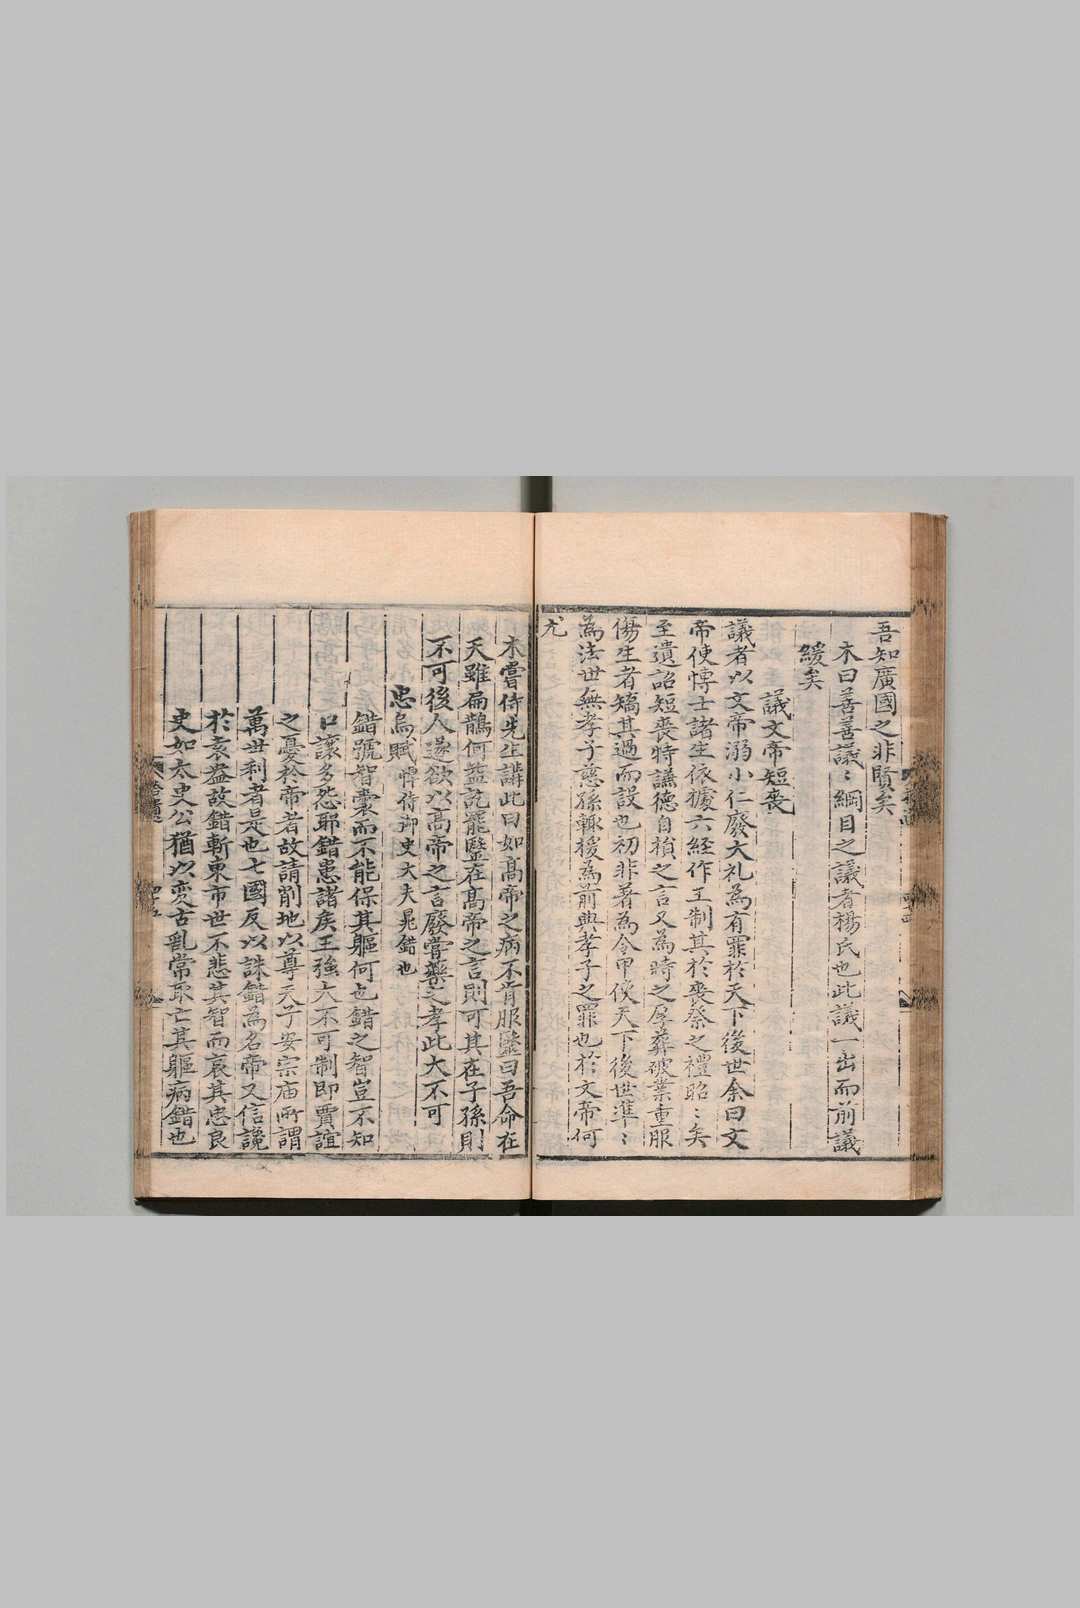 吾知廣國之非賢矣
木曰善善議〻綱目之議者楊氏也此議一出而前議
緩矣
議文帝短喪
議者以文帝溺小仁廢大礼為有罪於天下後世余曰文
帝使愽士諸生依㩀六経作王制其於喪祭之禮昭〻矣
至遺詔短喪特謙德自損之言又為時之厚葬破業重服
傷生者矯其過而設也初非著為令甲使天下後世準〻
為法世無孝子慈孫輙援為前典孝子之罪也於文帝何
尤
木嘗侍先生講此曰如高帝之病不肯服毉曰吾命在
天雖扁鵲何益訖罷毉在高帝之言則可其在子孫則
不可後人遂欲以高帝之言廢嘗藥之孝此大不可
忠烏賦 悼侍御史大夫晁錯也
錯號智囊而不能保其軀何也錯之智豈不知
口讓多怨耶錯患諸侯王強大不可制即賈誼
之憂於帝者故請削地以尊天子安宗庙所謂
萬世利者是也七國反以誅錯為名帝又信讒
於袁盎故錯斬東市世不悲其智而哀其忠良
史如太史公猶以变古亂常取亡其軀病錯也